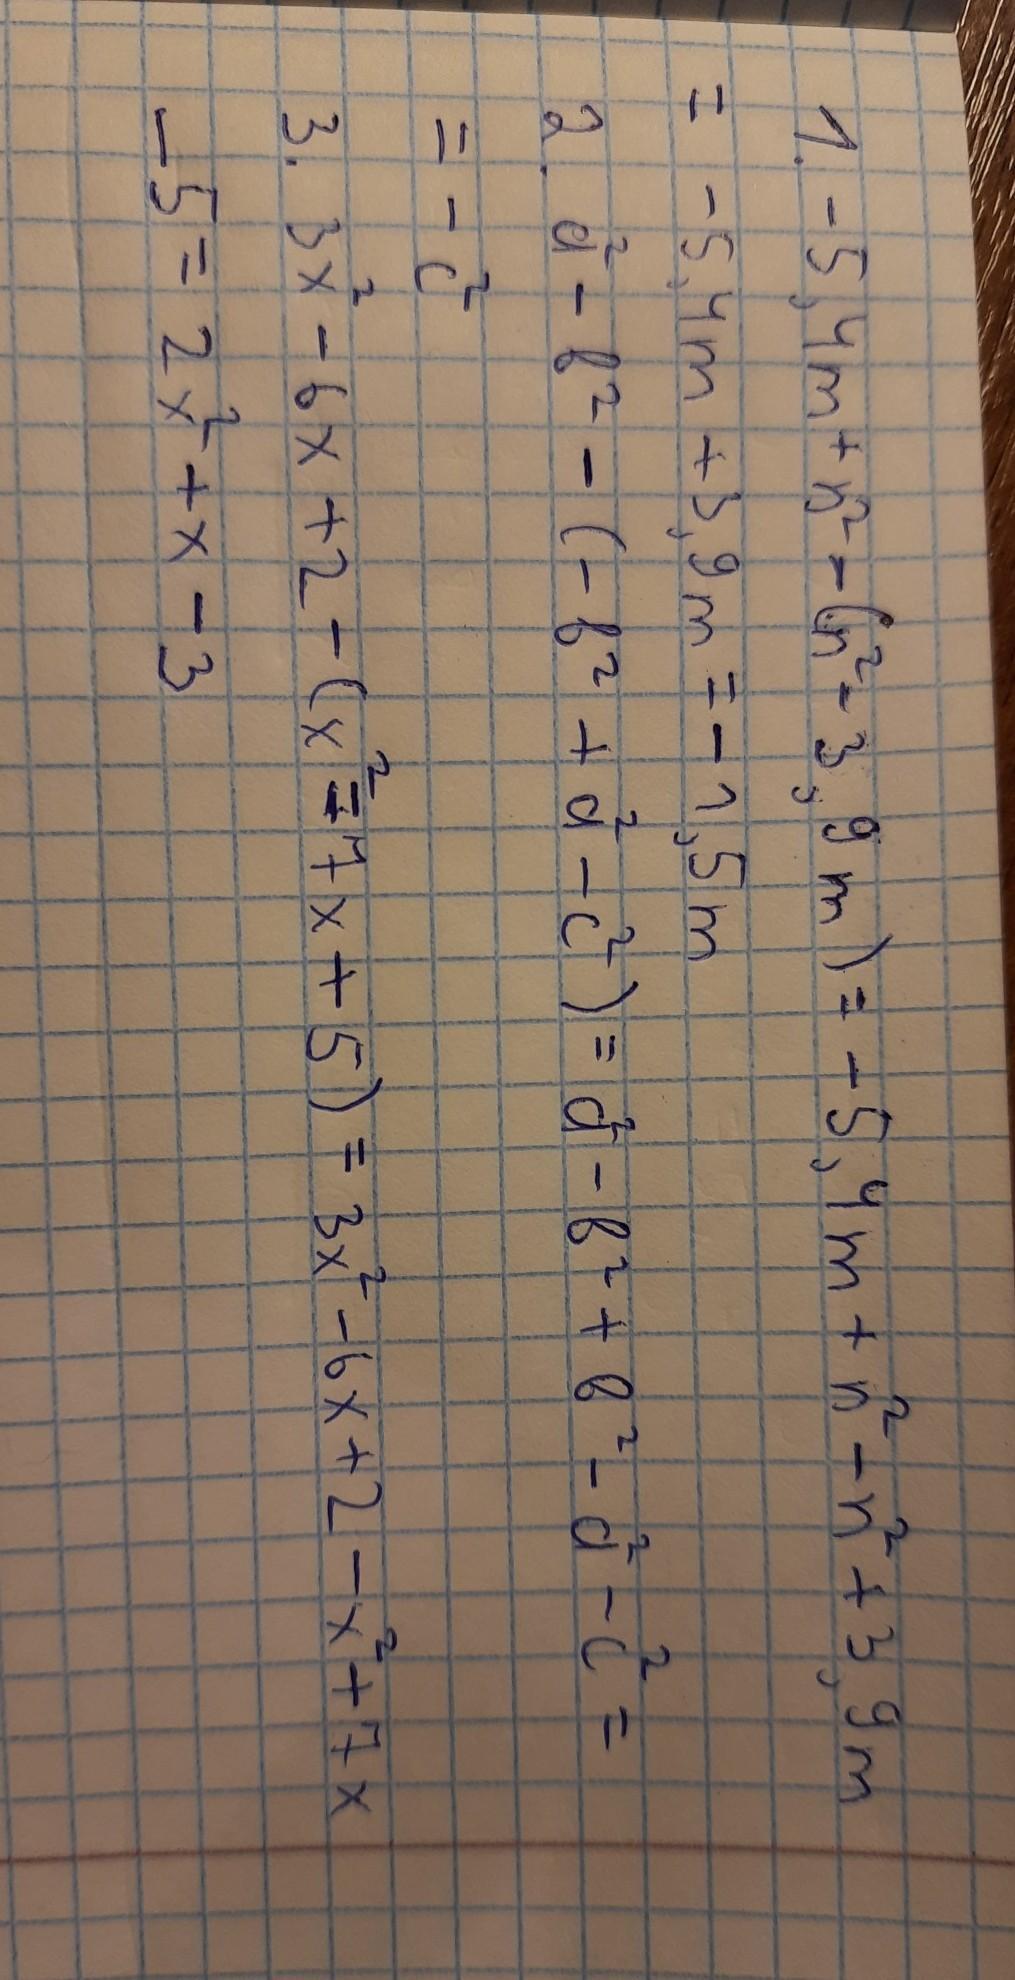 1. -5,4m + n² - (n² - 3,9m) = -5,4m + n² - n² + 3,9m
= -5,4m + 3,9m = -1,5m
2. a² - b² - (-b² + a² - c²) = a² - b² + b² - a² - c² =
= -c²
3. 3x² - 6x + 2 - (x² - 7x + 5) = 3x² - 6x + 2 - x² + 7x
- 5 = 2x² + x - 3